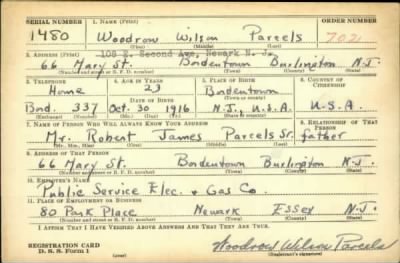 SERIAL NUMBER 1. NAME (Print) ORDER NUMBER
1480 Woodrow Wilson Parcels 702
(First) (Middle) (Last)
2. ADDRESS (Print) 108 E. Second Ave, Newark N. J.
66 Mary St. Bordentown Burlington N.J.
(Number and street or R. F. D. number) (Town) (County) (State)
3. TELEPHONE 4. AGE IN YEARS 5. PLACE OF BIRTH 6. COUNTRY OF CITIZENSHIP
Home 23 Bordentown
DATE OF BIRTH (Town or county)
Bord. 337 Oct. 30 1916 N.J., U.S.A. U.S.A.
(Exchange) (Number) (Mo.) (Day) (Yr.) (State or country)
7. NAME OF PERSON WHO WILL ALWAYS KNOW YOUR ADDRESS 8. RELATIONSHIP OF THAT PERSON
Mr. Robert James Parcels Sr. father
(Mr., Mrs., Miss) (First) (Middle) (Last)
9. ADDRESS OF THAT PERSON
66 Mary St. Bordentown Burlington N.J.
(Number and street or R. F. D. number) (Town) (County) (State)
10. EMPLOYER'S NAME
Public Service Elec. & Gas Co.
11. PLACE OF EMPLOYMENT OR BUSINESS
80 Park Place Newark Essex N.J.
(Number and street or R. F. D. number) (Town) (County) (State)
I AFFIRM THAT I HAVE VERIFIED ABOVE ANSWERS AND THAT THEY ARE TRUE.
REGISTRATION CARD
D. S. S. Form 1 (over) Woodrow Wilson Parcels
(Registrant's signature)